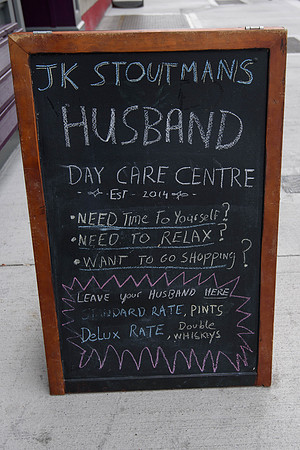 JK STOUTMANS
HUSBAND
DAY CARE CENTRE
- EST - 2014 -
• NEED Time To Yourself?
• NEED TO RELAX?
• WANT TO GO SHOPPING?
LEAVE your HUSBAND HERE
STANDARD RATE, PINTS
DeLux RATE, Double WHISKYS